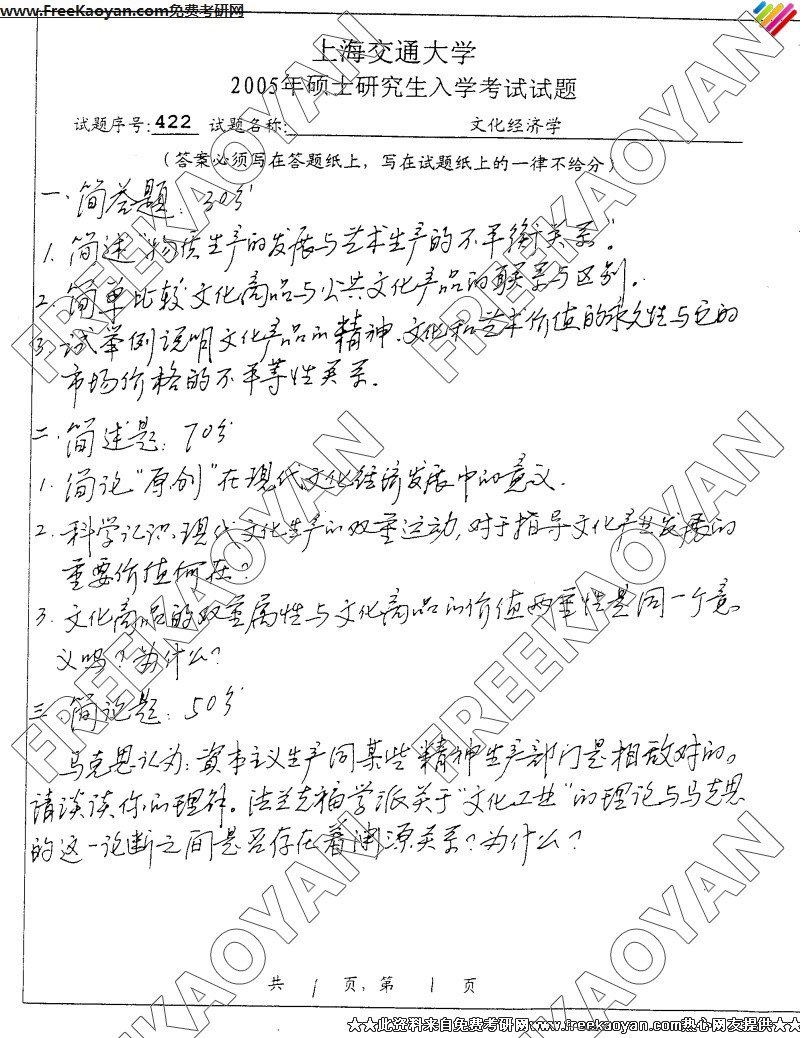 www.FreeKaoyan.com免费考研网
上海交通大学
2005年硕士研究生入学考试试题
试题序号:422 试题名称: 文化经济学
(答案必须写在答题纸上，写在试题纸上的一律不给分)
一、简答题：30分
1. 简述“物质生产的发展与艺术生产的不平衡关系”。
2. 简单比较文化商品与公共文化产品的联系与区别。
3. 试举例说明文化产品的精神、文化和艺术价值的永久性与它的
市场价格的不平等性关系.
二. 简述题：70分
1. 简论“原创”在现代文化经济发展中的意义.
2. 科学认识现代文化生产的双重运动,对于指导文化产业发展的
重要价值何在?
3. 文化商品的双重属性与文化商品的价值两重性是同一个意
义吗?为什么?
三.简论题：50分
马克思认为:资本主义生产同某些精神生产部门是相敌对的。
请谈谈你的理解。法兰克福学派关于“文化工业”的理论与马克思
的这一论断之间是否存在着渊源关系?为什么?
共 1 页,第 1 页
★★此资料来自免费考研网www.freekaoyan.com热心网友提供★★
FREEKAOYAN
FREEKAOYAN
FREEKAOYAN
FREEKAOYAN
FREEKAOYAN
FREEKAOYAN